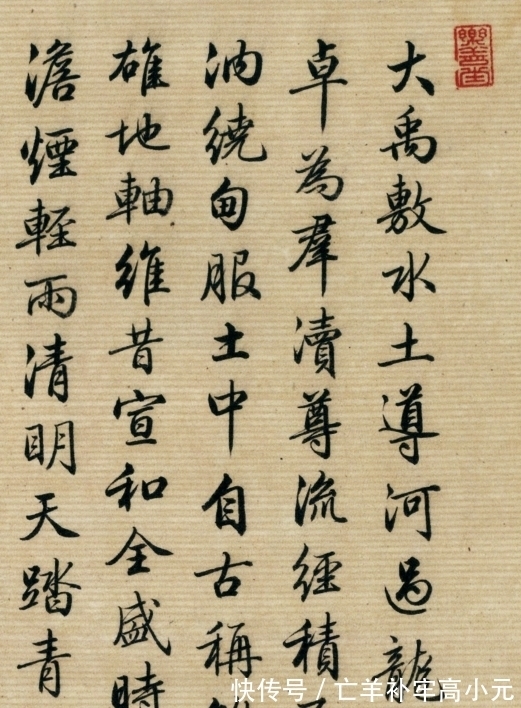 大禹敷水土導河過龍
卓為羣瀆尊流經積
洶繞甸服土中自古稱
雄地軸維昔宣和全盛時
澹煙輕雨清明天踏青
快传号/亡羊补牢高小元